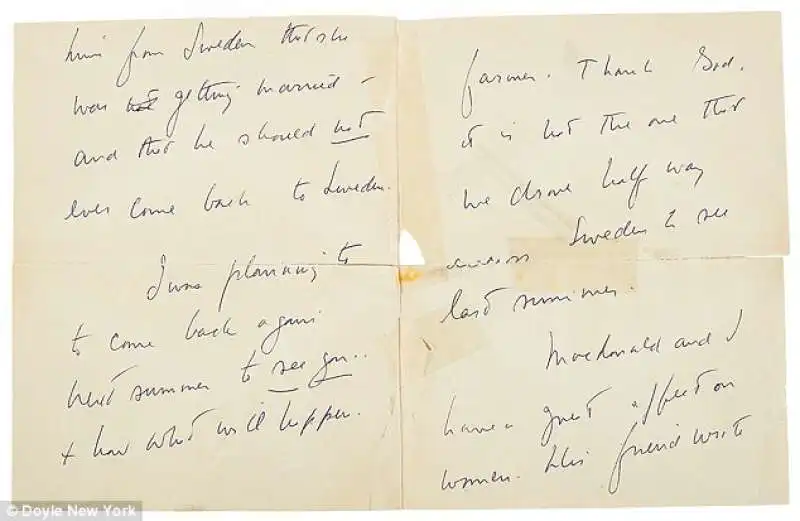 him from Sweden that she
was not getting married –
and that he should not
ever come back to Sweden.
I was planning to
to come back again
next summer to see you..
+ now what will happen.
farmer. Thank God,
it is not the one that
we drove half way
across Sweden to see
last summer.
Macdonald and I
have a great affect on
women. His friend wrote
© Doyle New York